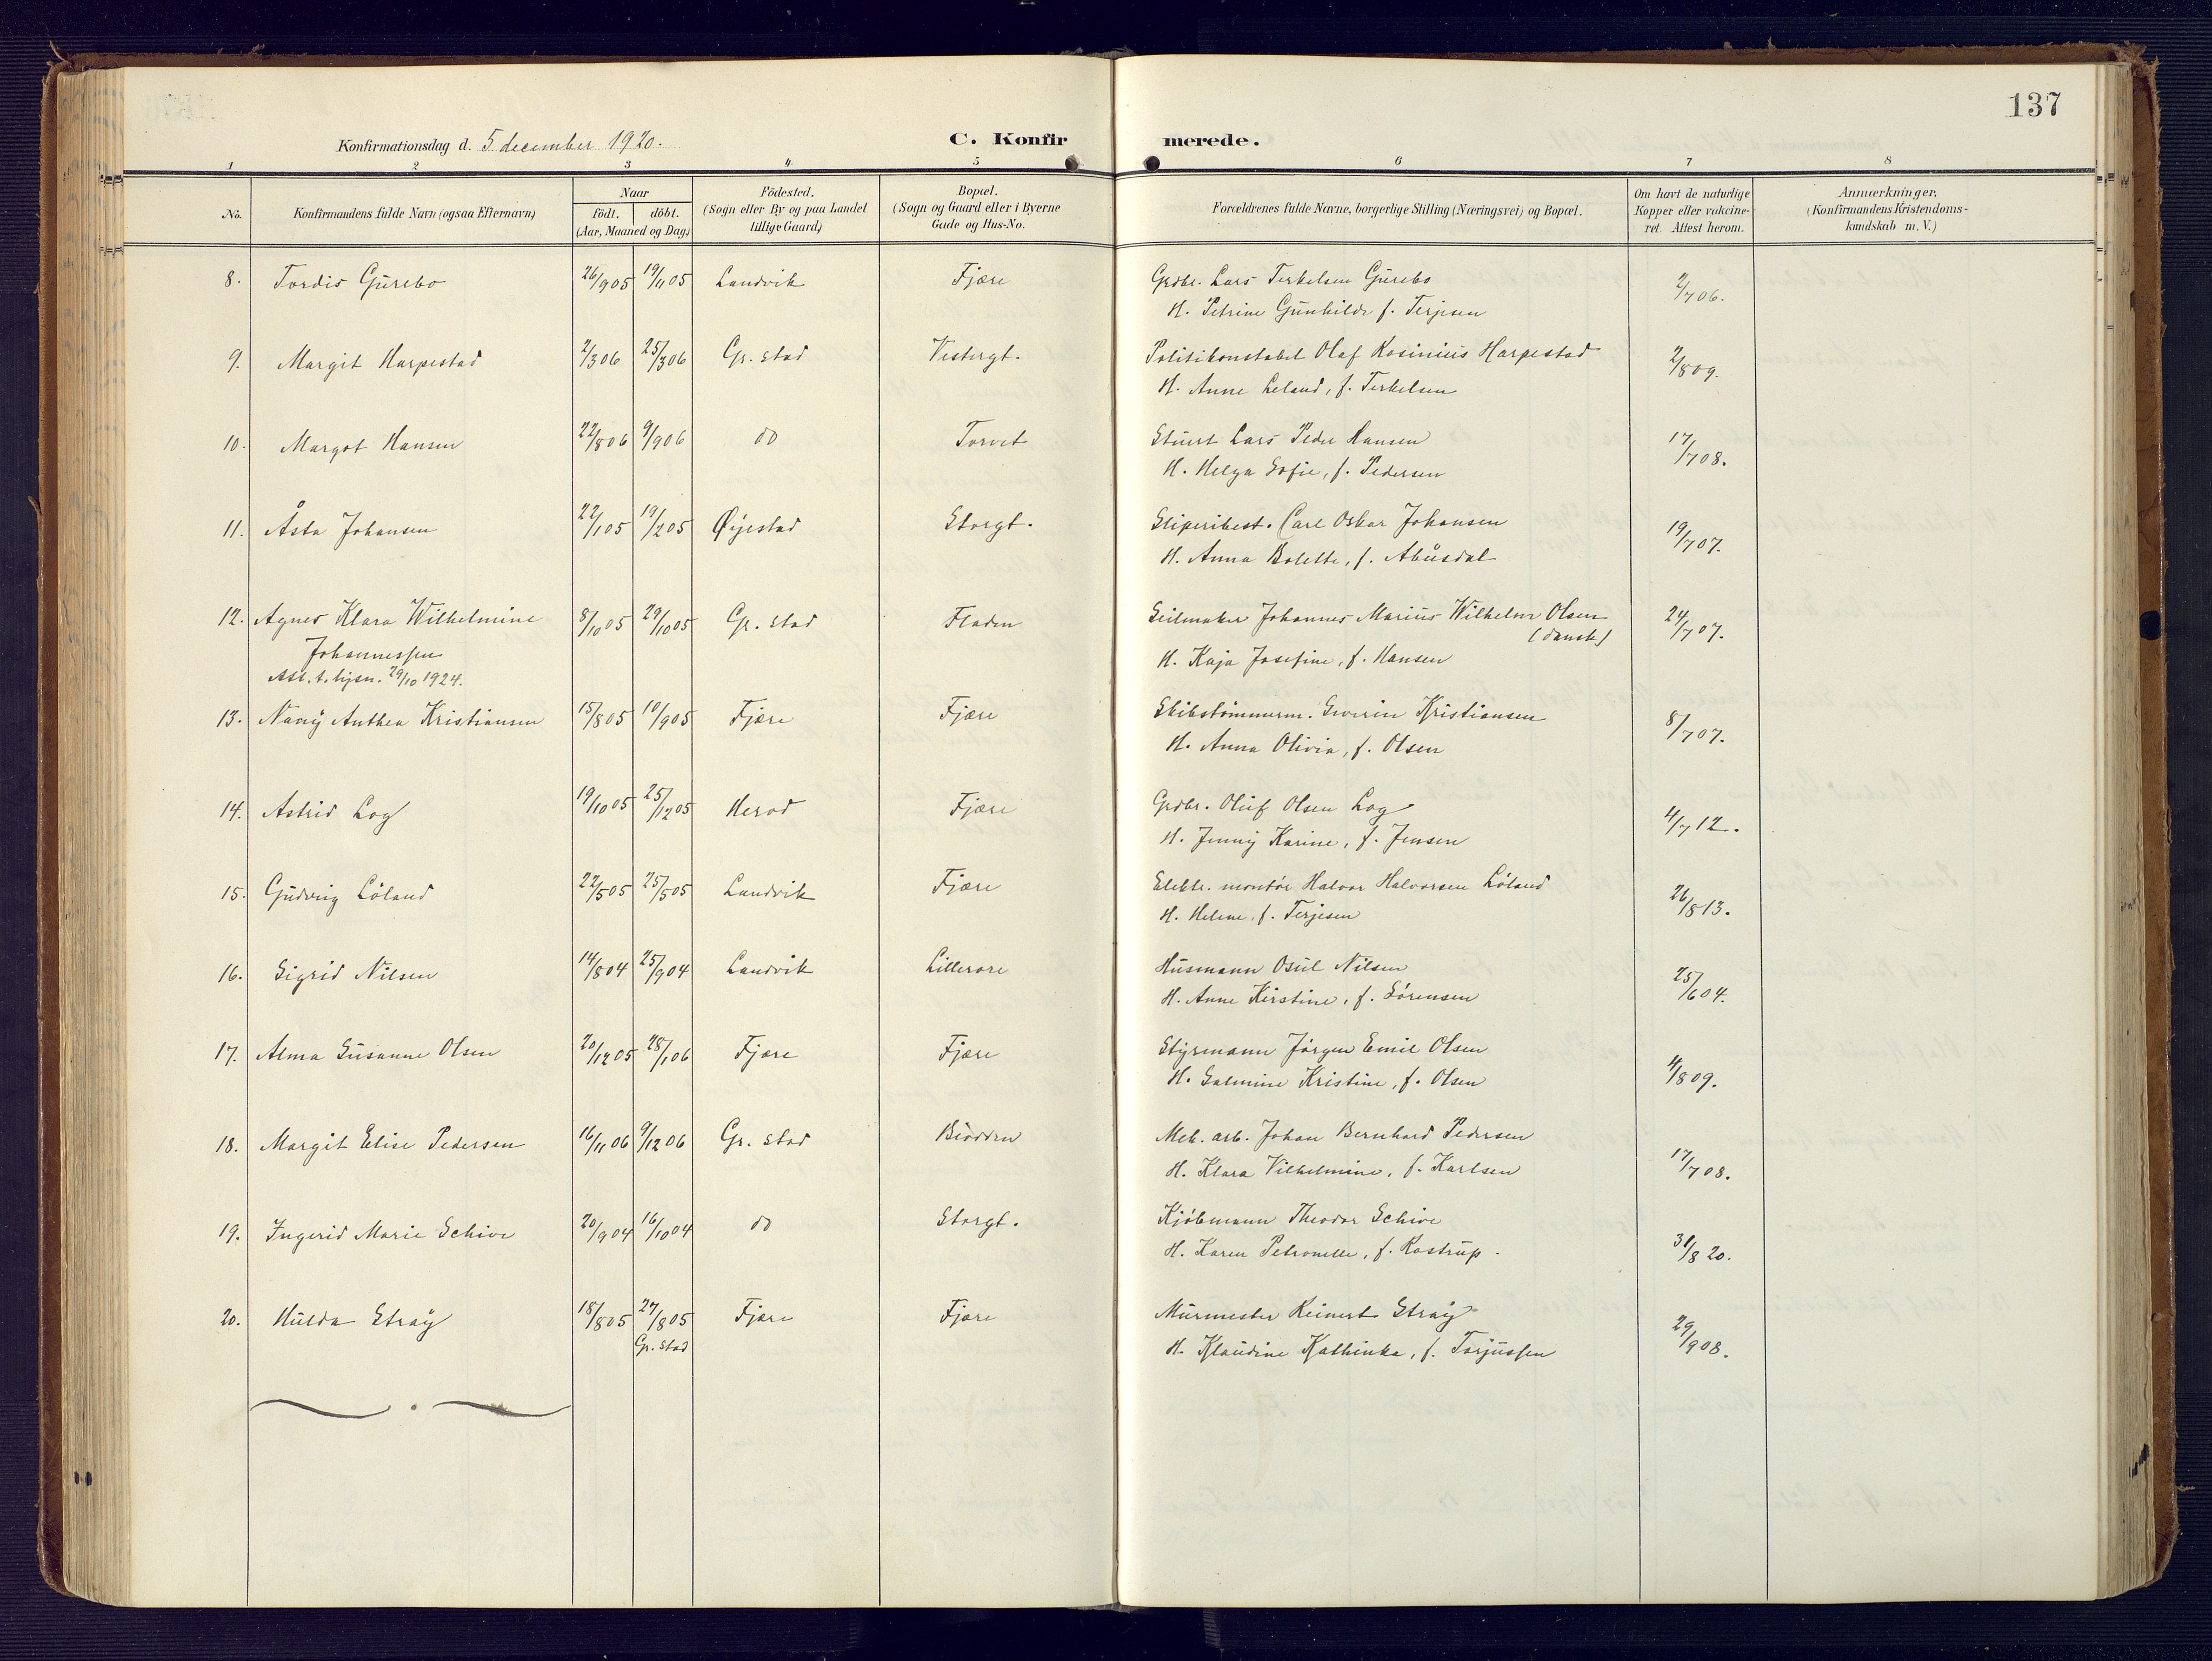 137
Konfirmationsdag d. 5 december 1920.
C. Konfirmerede.
1 2 3 4 5 6 7 8
No. Konfirmandens fulde Navn (ogsaa Efternavn) Naar födt. döbt. (Aar, Maaned og Dag.) Födested. (Sogn eller By og paa Landet tillige Gaard) Bopæl. (Sogn og Gaard eller i Byerne Gade og Hus-No. Forældrenes fulde Navne, borgerlige Stilling (Næringsvei) og Bopæl. Om havt de naturlige Kopper eller vakcineret. Attest herom. Anmærkninger. (Konfirmandens Kristendomskundskab m. V.)
8. Tordis Gurebo 26/9 05 19/11 05 Landvik Fjære Grdbr. Lars Terkelsen Gurebo 2/7 06.
H. Petrine Gunhilde f. Terjesen
9. Margit Harpestad 2/3 06 25/3 06 Gr.stad Vestergt. Politikonstabel Olaf Rosinius Harpestad 2/8 09.
H. Anne Leland, f. Terkelsen
10. Margot Hansen 22/8 06 9/9 06 do Torvet Stuert Lars Peder Hansen 17/7 08.
H. Helga Sofie, f. Pedersen
11. Åsta Johansen 22/1 05 19/2 05 Øyestad Storgt. Sliperibest. Carl Oskar Johansen 19/7 07.
H. Anna Bolette, f. Abusdal
12. Agnes Klara Wilhelmine 8/10 05 29/10 05 Gr.stad Fladen Seilmaker Johannes Marius Wilhelm Olsen 24/7 07.
Johannessen (dansk)
Att. t. lysn. 29/10 1924. H. Kaja Josefine, f. Hansen
13. Nany Anthea Kristiansen 15/8 05 10/9 05 Fjære Fjære Skibstømmerm. Severin Kristiansen 8/7 07.
H. Anna Olivia, f. Olsen
14. Astrid Log 19/10 05 25/12 05 Herod Fjære Grdbr. Oluf Olsen Log 4/7 12.
H. Jenny Karine, f. Jensen
15. Gudveig Löland 22/5 05 25/5 05 Landvik Fjære Elektr. montör Halvor Halvorsen Löland 26/8 13.
H. Helene, f. Terjesen
16. Sigrid Nilsen 14/8 04 25/9 04 Landvik Lillerore Husmann Osul Nilsen 25/6 04.
H. Anne Kirstine, f. Sörensen
17. Alma Susanne Olsen 20/12 05 28/1 06 Fjære Fjære Styrmann Jörgen Emil Olsen 4/8 09.
H. Salmine Kristine, f. Olsen
18. Margit Elise Pedersen 16/11 06 9/12 06 Gr.stad Biodden Mek. arb. Johan Bernhard Pedersen 17/7 08.
H. Klara Vilhelmine, f. Karlsen
19. Ingerid Marie Schive 20/9 04 16/10 04 do Storgt. Kjöbmann Theodor Schive 31/8 20.
H. Karen Petronelle, f. Rostrup.
20. Hulda Stray 18/8 05 27/8 05 Fjære Fjære Murmester Reinert Stray 29/9 08.
Gr.stad H. Klaudine Kathinka, f. Torjussen